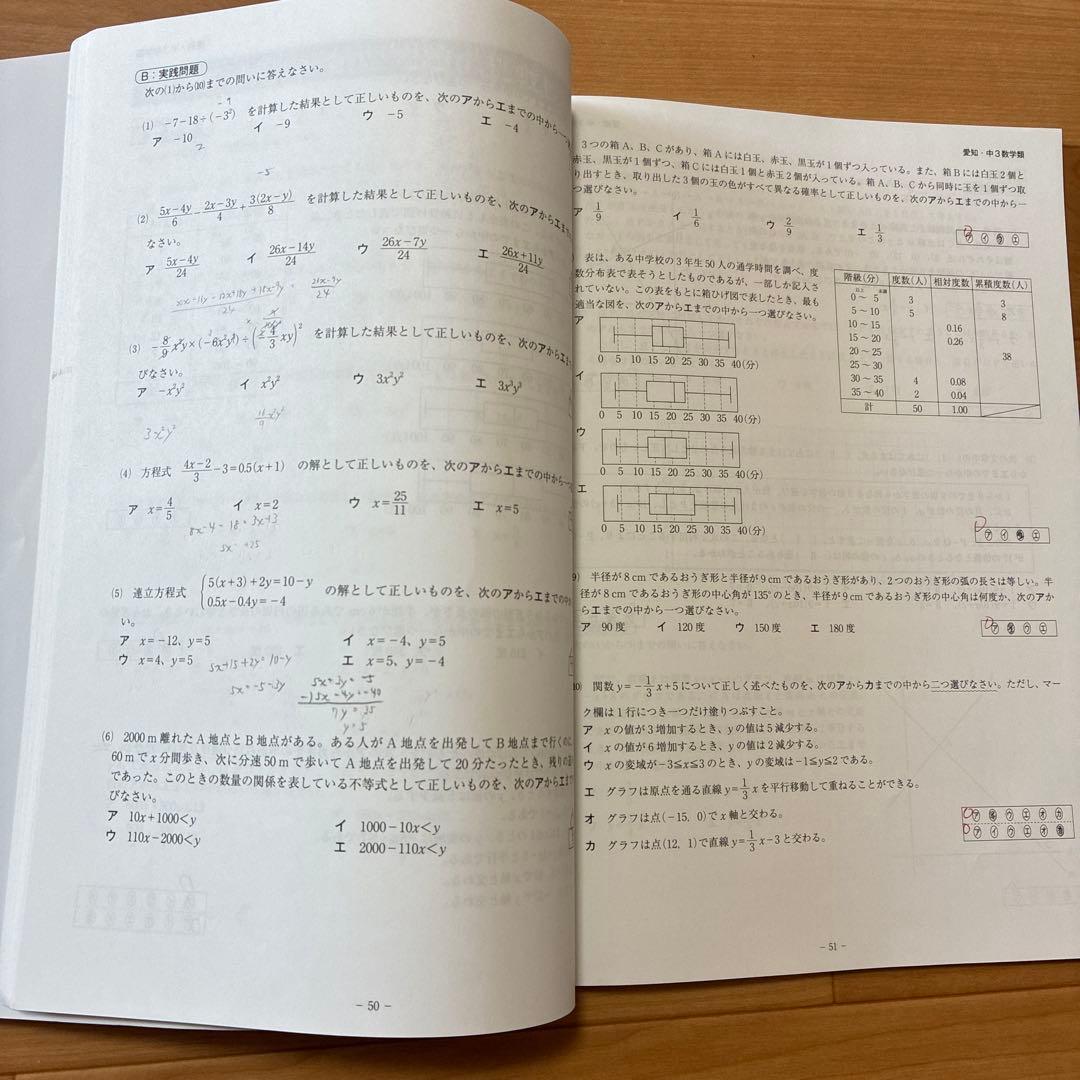 B：実践問題
次の(1)から(10)までの問いに答えなさい。
-9
(1) −7−18÷(−3²) を計算した結果として正しいものを、次のアからエまでの中から一つ
ア −10 イ −9 ウ −5 エ −4
2
-5
(2) (5x−4y)/6 − (2x−3y)/4 + 3(2x−y)/8 を計算した結果として正しいものを、次のアからエま
なさい。
ア (5x−4y)/24 イ (26x−14y)/24 ウ (26x−7y)/24 エ (26x+11y)/24
(3) −8/9 x²y×(−6x²y³)÷(−4/3 xy)² を計算した結果として正しいものを、次のアからエま
びなさい。
ア −x²y² イ x²y² ウ 3x²y² エ 3x³y³
3x²y²
(4) 方程式 (4x−2)/3 −3=0.5(x+1) の解として正しいものを、次のアからエまでの中か
ア x=4/5 イ x=2 ウ x=25/11 エ x=5
8x-4-18=3x+3
5x=+25
(5) 連立方程式 {5(x+3)+2y=10−y
0.5x−0.4y=−4 の解として正しいものを、次のアからエまでの中か
い。
ア x=−12、y=5 イ x=−4、y=5
ウ x=4、y=5 エ x=5、y=−4
5x+15+2y=10-y
5x=-5-3y
5x+3y=-5
-)5x-4y=-40
7y=35
y=5
(6) 2000m離れたA地点とB地点がある。ある人がA地点を出発してB地点まで行くのに
60mでx分間歩き、次に分速50mで歩いてA地点を出発して20分たったとき、残りの道
であった。このときの数量の関係を表している不等式として正しいものを、次のアからエま
びなさい。
ア 10x+1000<y イ 1000−10x<y
ウ 110x−2000<y エ 2000−110x<y
− 50 −
愛知・中3数学類
3つの箱A、B、Cがあり、箱Aには白玉、赤玉、黒玉が1個ずつ入っている。また、箱Bには白玉2個と
赤玉、黒玉が1個ずつ、箱Cには白玉1個と赤玉2個が入っている。箱A、B、Cから同時に玉を1個ずつ取
り出すとき、取り出した3個の玉の色がすべて異なる確率として正しいものを、次のアからエまでの中から一
つ選びなさい。
ア 1/9 イ 1/6 ウ 2/9 エ 1/3
ア イ ウ エ
表は、ある中学校の3年生50人の通学時間を調べ、度
数分布表で表そうとしたものであるが、一部しか記入さ
れていない。この表をもとに箱ひげ図で表したとき、最も
適当な図を、次のアからエまでの中から一つ選びなさい。
階級(分) 度数(人) 相対度数 累積度数(人)
以上 未満
0～5 3 3
5～10 5 8
10～15 0.16
15～20 0.26
20～25 38
25～30
30～35 4 0.08
35～40 2 0.04
計 50 1.00
ア
0 5 10 15 20 25 30 35 40(分)
イ
0 5 10 15 20 25 30 35 40(分)
ウ
0 5 10 15 20 25 30 35 40(分)
エ
0 5 10 15 20 25 30 35 40(分)
ア イ ウ エ
9) 半径が8cmであるおうぎ形と半径が9cmであるおうぎ形があり、2つのおうぎ形の弧の長さは等しい。半
径が8cmであるおうぎ形の中心角が135°のとき、半径が9cmであるおうぎ形の中心角は何度か、次のアか
らエまでの中から一つ選びなさい。
ア 90度 イ 120度 ウ 150度 エ 180度
ア イ ウ エ
10) 関数y=−1/3 x+5について正しく述べたものを、次のアからカまでの中から二つ選びなさい。ただし、マー
ク欄は1行につき一つだけ塗りつぶすこと。
ア xの値が3増加するとき、yの値は5減少する。
イ xの値が6増加するとき、yの値は2減少する。
ウ xの変域が−3≦x≦3のとき、yの変域は−1≦y≦2である。
エ グラフは原点を通る直線y=1/3 xを平行移動して重ねることができる。
オ グラフは点(−15, 0)でx軸と交わる。
カ グラフは点(12, 1)で直線y=1/3 x−3と交わる。
ア イ ウ エ オ カ
ア イ ウ エ オ カ
− 51 −